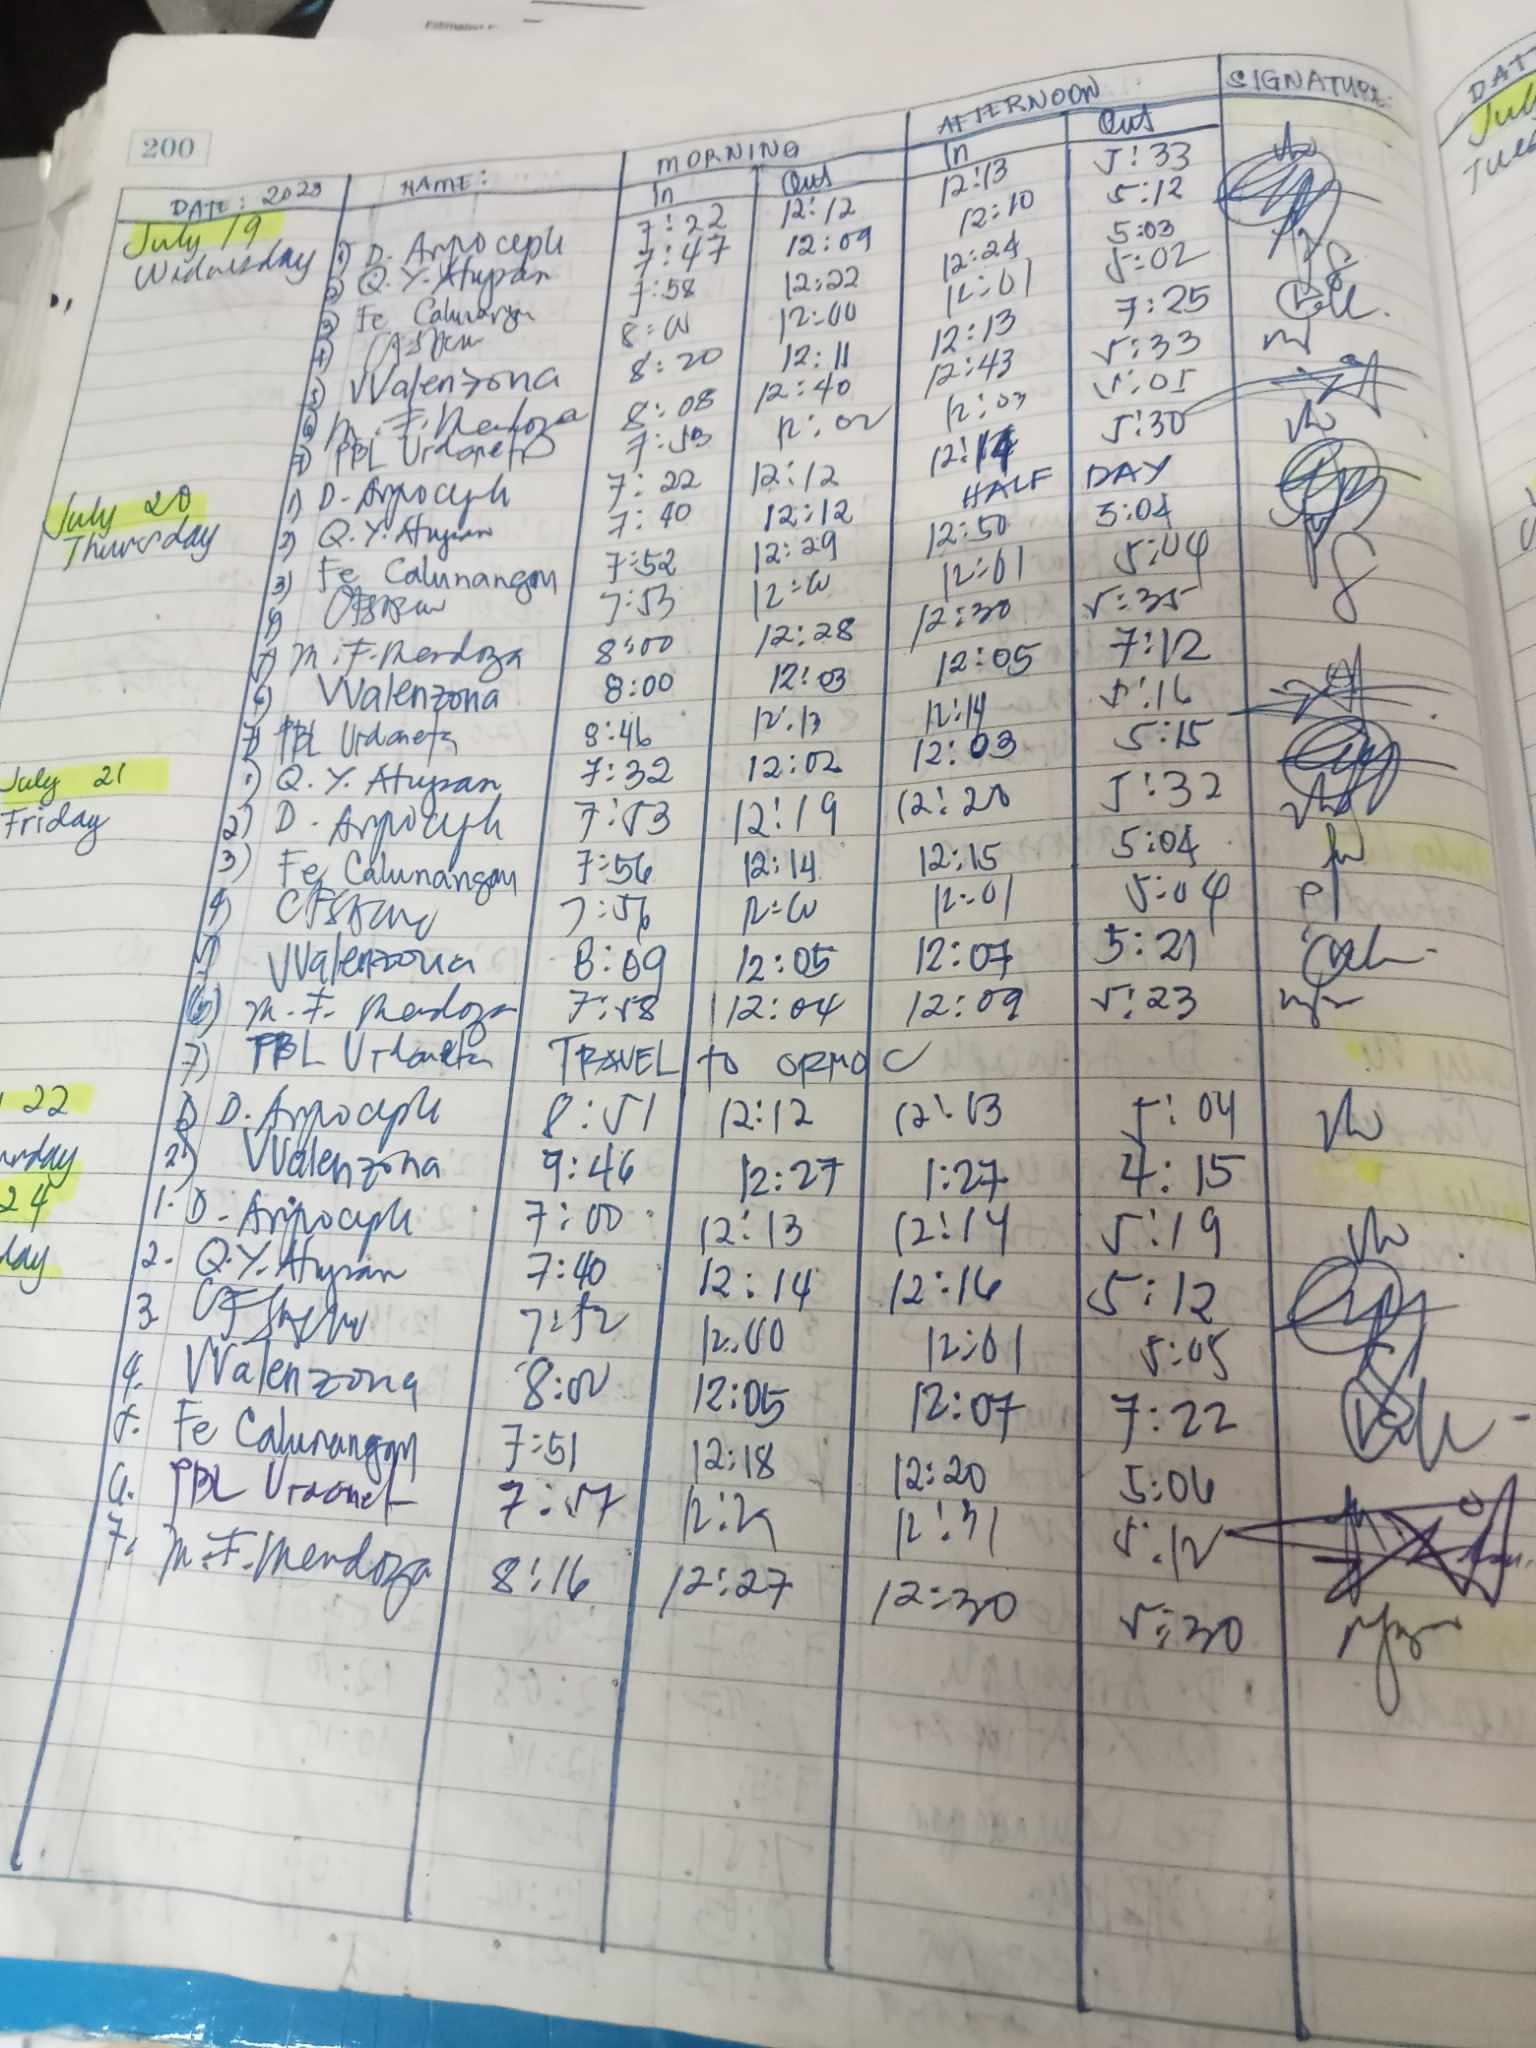 200
DATE: 2023 NAME: MORNING AFTERNOON SIGNATURE:
In Out In Out
July 19 1) D. 7:22 12:12 12:13 5:33
Widnesday 2) Q.Y. Atupan 7:47 12:09 12:10 5:12
3) Fe Calunangan 7:58 12:22 12:24 5:03
4) 8:00 12:00 12:01 5:02
5) VValenzona 8:20 12:11 12:13 7:25
6) M.F. Mendoza 8:08 12:40 12:43 5:33
7) PBL Urdaneta 7:53 12:02 12:03 5:05
July 20 1) D. 7:22 12:12 12:14 5:30
Thursday 2) Q.Y. Atupan 7:40 12:12 HALF DAY
3) Fe Calunangan 7:52 12:29 12:50 5:04
4) 7:53 12:00 12:01 5:04
5) M.F. Mendoza 8:00 12:28 12:30 5:35
6) VValenzona 8:00 12:03 12:05 7:12
7) PBL Urdaneta 8:46 12:13 12:14 5:16
July 21 1) Q.Y. Atupan 7:32 12:02 12:03 5:15
Friday 2) D. 7:53 12:19 12:20 5:32
3) Fe Calunangan 7:56 12:14 12:15 5:04
4) 7:56 12:00 12:01 5:04
5) VValenzona 8:09 12:05 12:07 5:21
6) M.F. Mendoza 7:58 12:04 12:09 5:23
7) PBL Urdaneta TRAVEL to ORMOC
22 1) D. 8:51 12:12 12:13 5:04
2) VValenzona 9:46 12:27 1:27 4:15
24 1. D. 7:00 12:13 12:14 5:19
2. Q.Y. Atupan 7:40 12:14 12:16 5:12
3. 7:52 12:00 12:01 5:05
4. VValenzona 8:00 12:05 12:07 7:22
5. Fe Calunangan 7:51 12:18 12:20 5:06
6. PBL Urdaneta 7:57 12:29 12:31 5:12
7. M.F. Mendoza 8:16 12:27 12:30 5:30